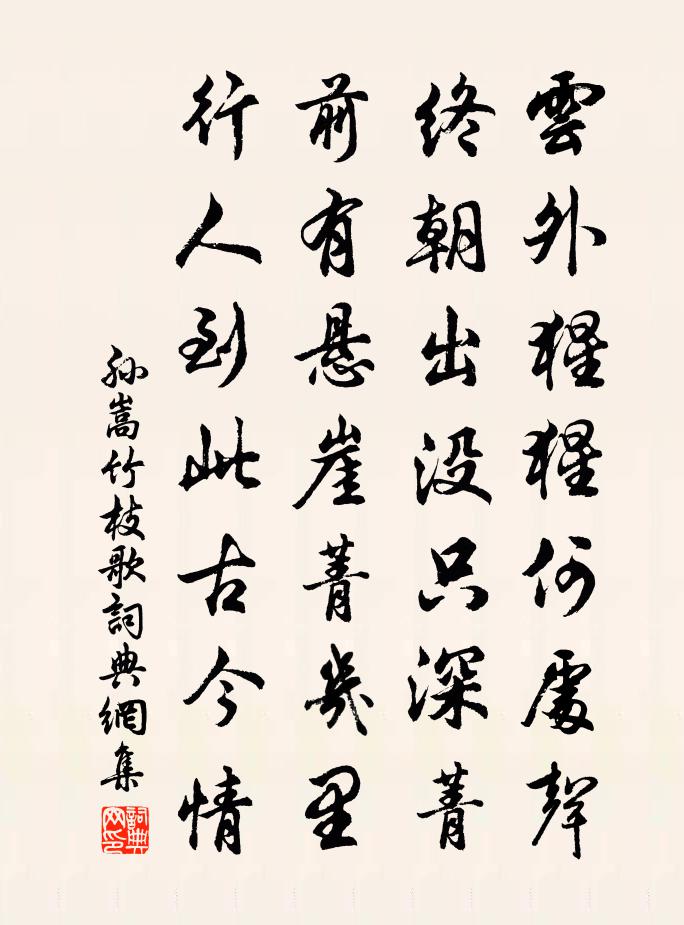 雲外猩猩何處聲
終朝出没只深菁
前有懸崖菁幾里
行人到此古今情
孫嵩竹枝歌詞典網集
詞典網印